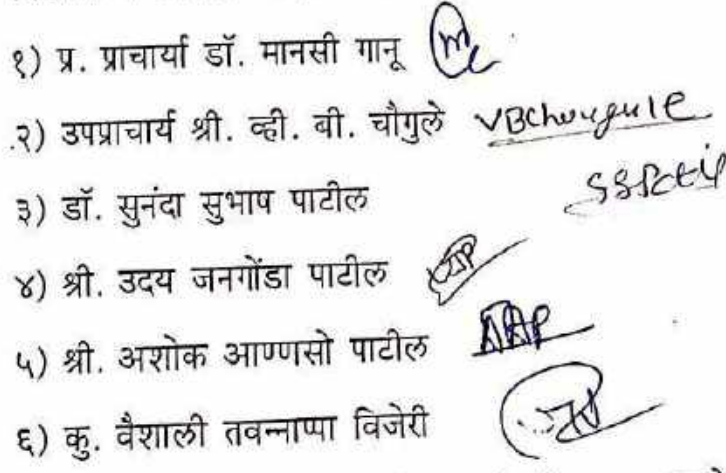 १) प्र. प्राचार्या डॉ. मानसी गानू
२) उपप्राचार्य श्री. व्ही. बी. चौगुले VBChougule
३) डॉ. सुनंदा सुभाष पाटील SSPatil
४) श्री. उदय जनगोंडा पाटील
५) श्री. अशोक आण्णासो पाटील AAP
६) कु. वैशाली तवन्नाप्पा विजेरी